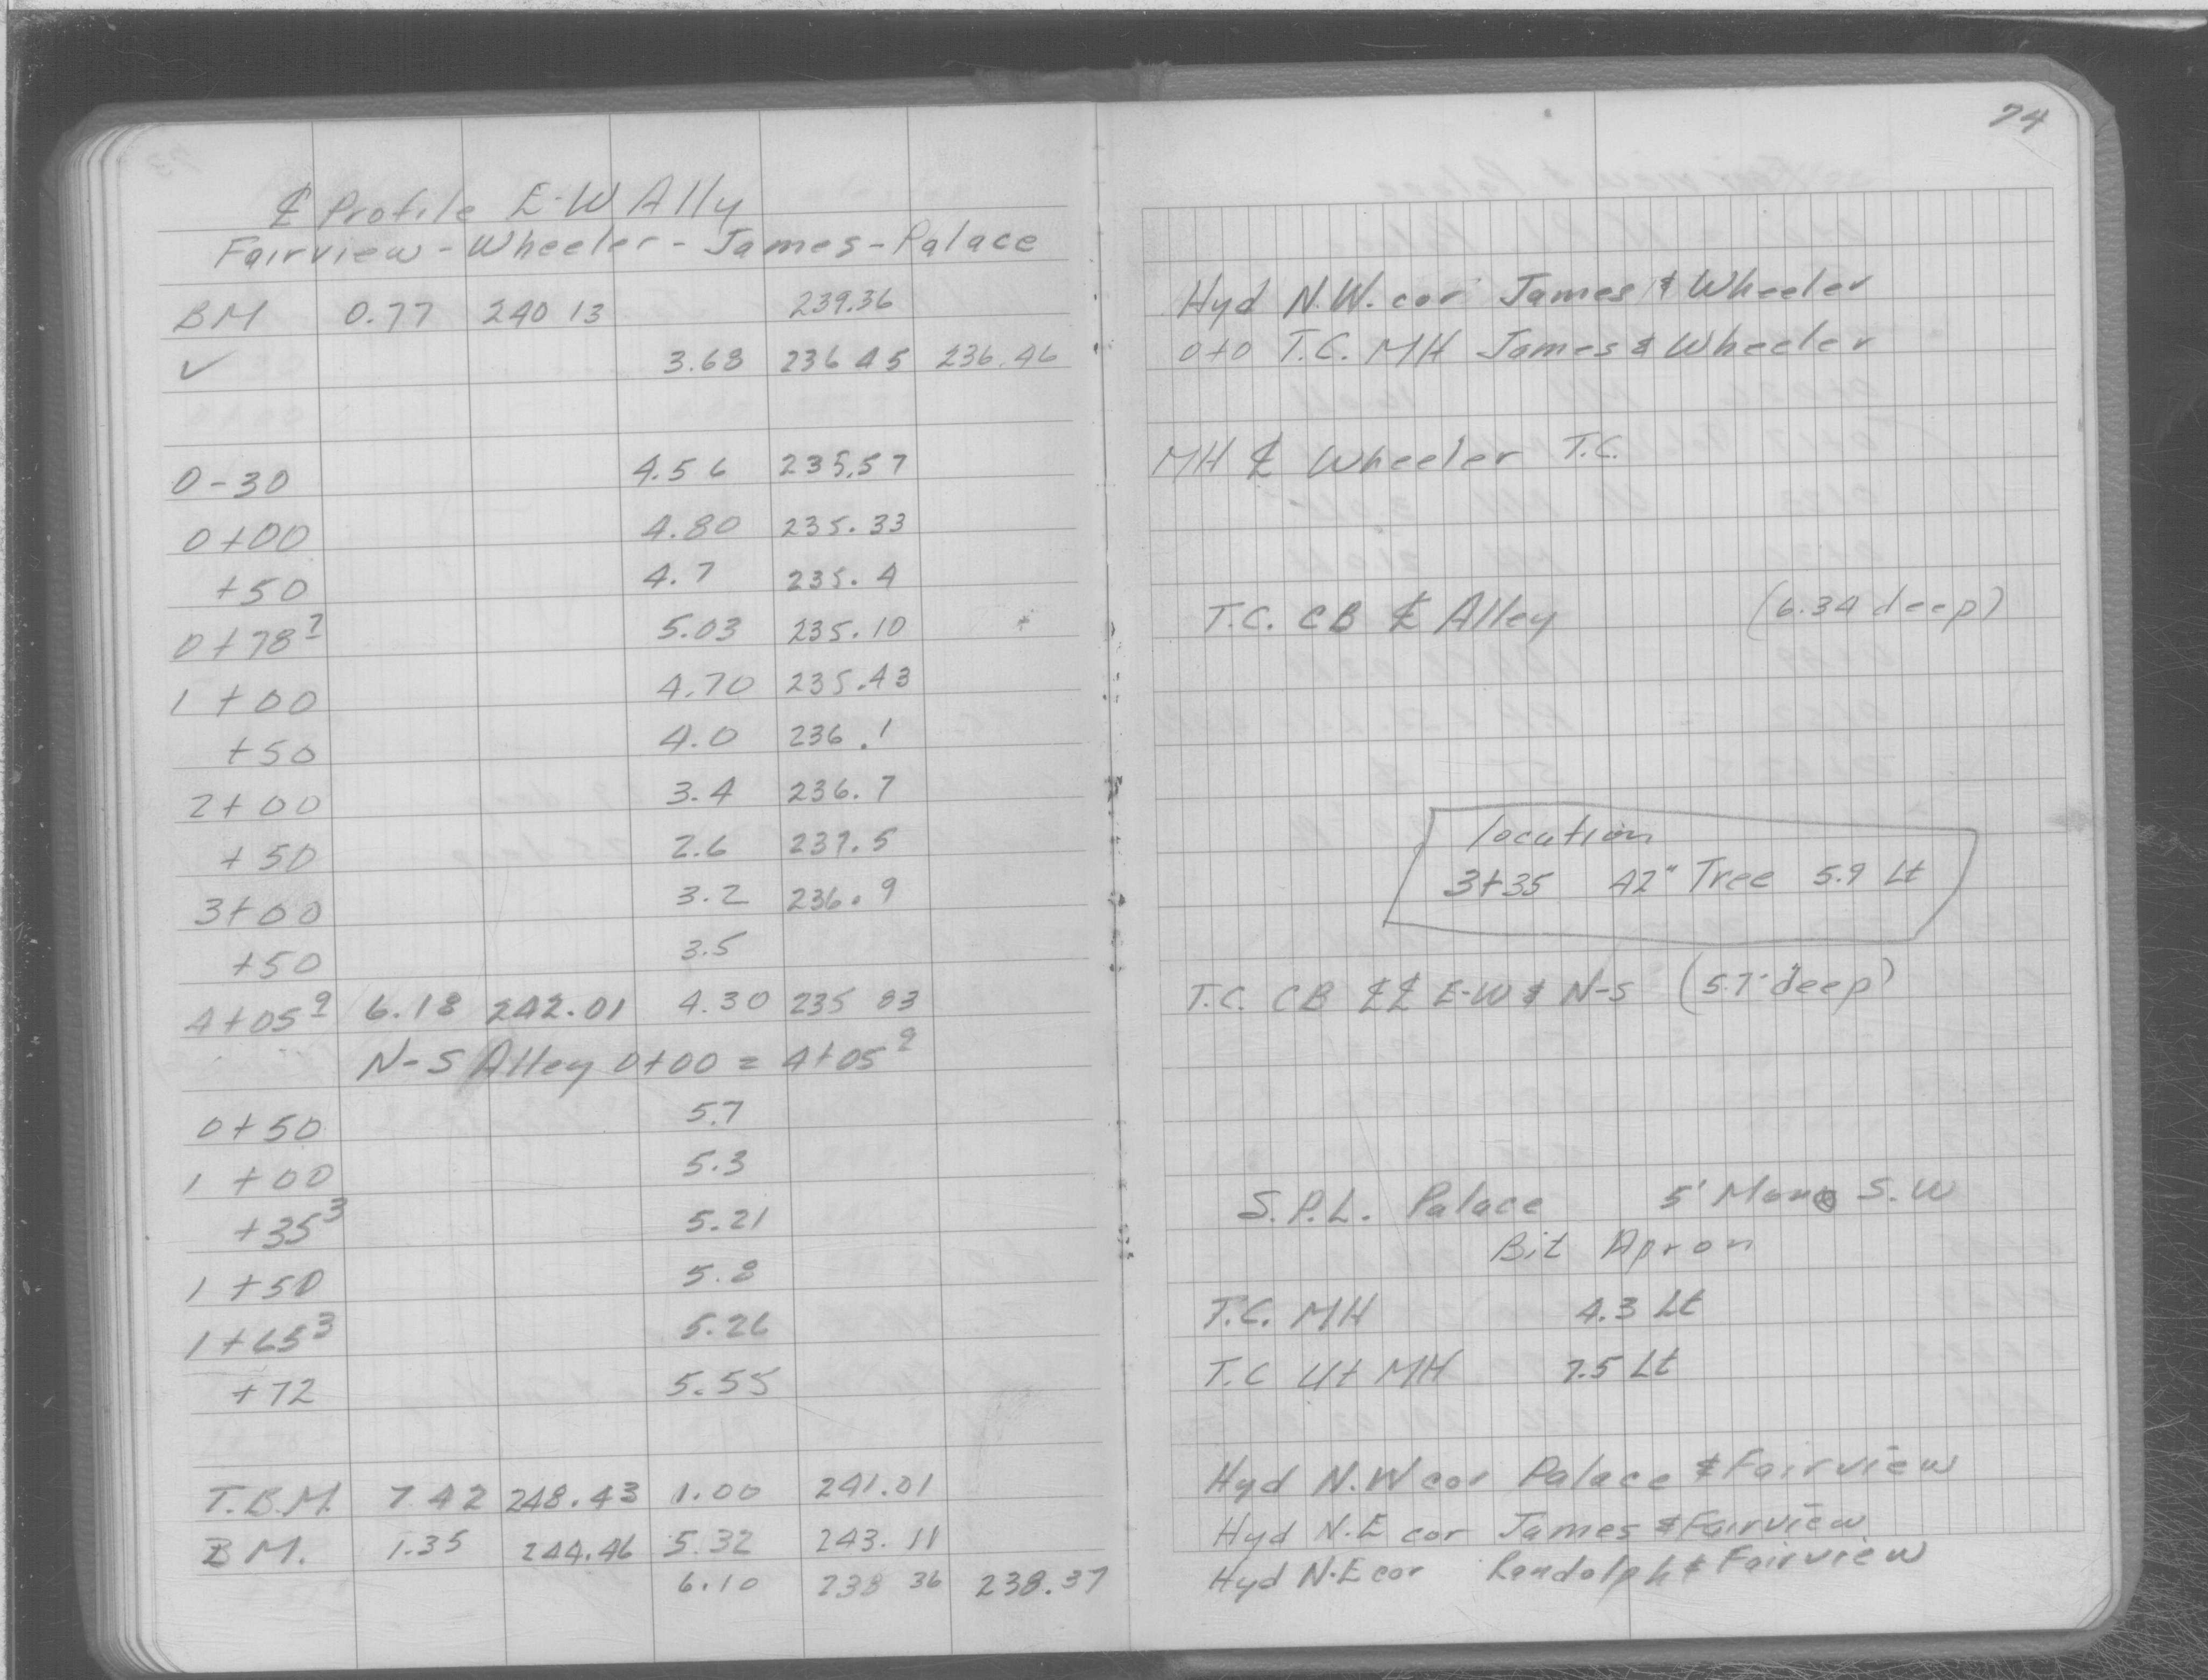 74
₵ Profile E-W Ally
Fairview - Wheeler - James - Palace
BM 0.77 240 13 239.36 Hyd N.W. cor James & Wheeler
✓ 3.68 236 45 236.46 0+0 T.C. MH James & Wheeler
0-30 4.56 235.57 MH ₵ Wheeler T.C.
0+00 4.80 235.33
+50 4.7 235.4
0+78⁷ 5.03 235.10 T.C. CB ₵ Alley (6.34 deep)
1+00 4.70 235.43
+50 4.0 236.1
2+00 3.4 236.7
+50 2.6 237.5 location
3+00 3.2 236.9 3+35 42" Tree 5.9 Lt
+50 3.5
4+05⁹ 6.18 242.01 4.30 235 83 T.C. CB ₵₵ E-W & N-S (5.7' deep)
N-S Alley 0+00 = 4+05⁹
0+50 5.7
1+00 5.3
+35³ 5.21 S.P.L. Palace 5' Mono S.W
Bit Apron
1+50 5.8
1+65³ 5.26 T.C. MH 4.3 Lt
+72 5.55 T.C Ut MH 7.5 Lt
T.B.M. 7 42 248.43 1.00 241.01 Hyd N.W cor Palace & Fairview
B M. 1.35 244.46 5.32 243.11 Hyd N.E cor James & Fairview
6.10 238 36 238.37 Hyd N.E cor Randolph & Fairview